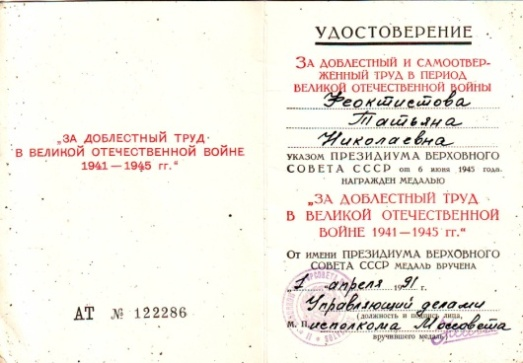 „ЗА ДОБЛЕСТНЫЙ ТРУД
В ВЕЛИКОЙ ОТЕЧЕСТВЕННОЙ ВОЙНЕ
1941—1945 гг.“
АТ № 122286
УДОСТОВЕРЕНИЕ
ЗА ДОБЛЕСТНЫЙ И САМООТВЕР-
ЖЕННЫЙ ТРУД В ПЕРИОД
ВЕЛИКОЙ ОТЕЧЕСТВЕННОЙ ВОЙНЫ
Феоктистова
Татьяна
Николаевна
УКАЗОМ ПРЕЗИДИУМА ВЕРХОВНОГО
СОВЕТА СССР от 6 июня 1945 года
НАГРАЖДЕН МЕДАЛЬЮ
„ЗА ДОБЛЕСТНЫЙ ТРУД
В ВЕЛИКОЙ ОТЕЧЕСТВЕННОЙ
ВОЙНЕ 1941—1945 гг.“
От имени ПРЕЗИДИУМА ВЕРХОВНОГО
СОВЕТА СССР МЕДАЛЬ ВРУЧЕНА
апреля 1991 г.
Управляющий делами
(должность и подпись лица,
М. П. исполкома Моссовета
вручившего медаль)